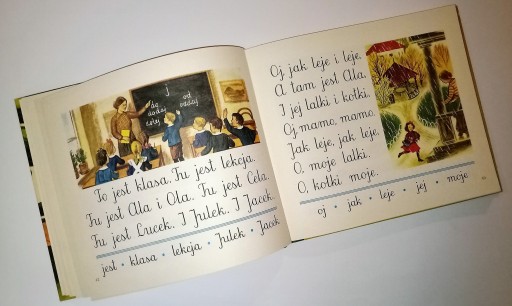 j
da od
daday oddaj
daj
To jest klasa. Tu jest lekcja.
Tu jest Ala i Ola. Tu jest Cela.
Tu jest Lucek. I Julek. I Jacek.
jest • klasa • lekcja • Julek • Jacek
Oj, jak leje i leje.
A tam jest Ala.
I jej lalki i kotki.
Oj mamo, mamo.
Jak leje, jak leje.
O, moje lalki.
O, kotki moje.
oj • jak • leje • jej • moje